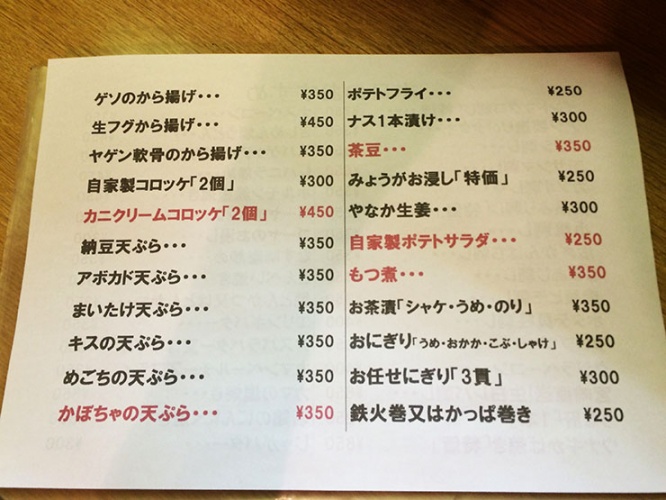 ゲソのから揚げ・・・ ¥350
生フグから揚げ・・・ ¥450
ヤゲン軟骨のから揚げ・・・ ¥350
自家製コロッケ「2個」 ¥300
カニクリームコロッケ「2個」 ¥450
納豆天ぷら・・・ ¥350
アボカド天ぷら・・・ ¥350
まいたけ天ぷら・・・ ¥350
キスの天ぷら・・・ ¥350
めごちの天ぷら・・・ ¥350
かぼちゃの天ぷら・・・ ¥350
ポテトフライ・・・ ¥250
ナス1本漬け・・・ ¥300
茶豆・・・ ¥350
みょうがお浸し「特価」 ¥250
やなか生姜・・・ ¥300
自家製ポテトサラダ・・・ ¥250
もつ煮・・・ ¥350
お茶漬「シャケ・うめ・のり」 ¥350
おにぎり「うめ・おかか・こぶ・しゃけ」 ¥250
お任せにぎり「3貫」 ¥300
鉄火巻又はかっぱ巻き ¥250